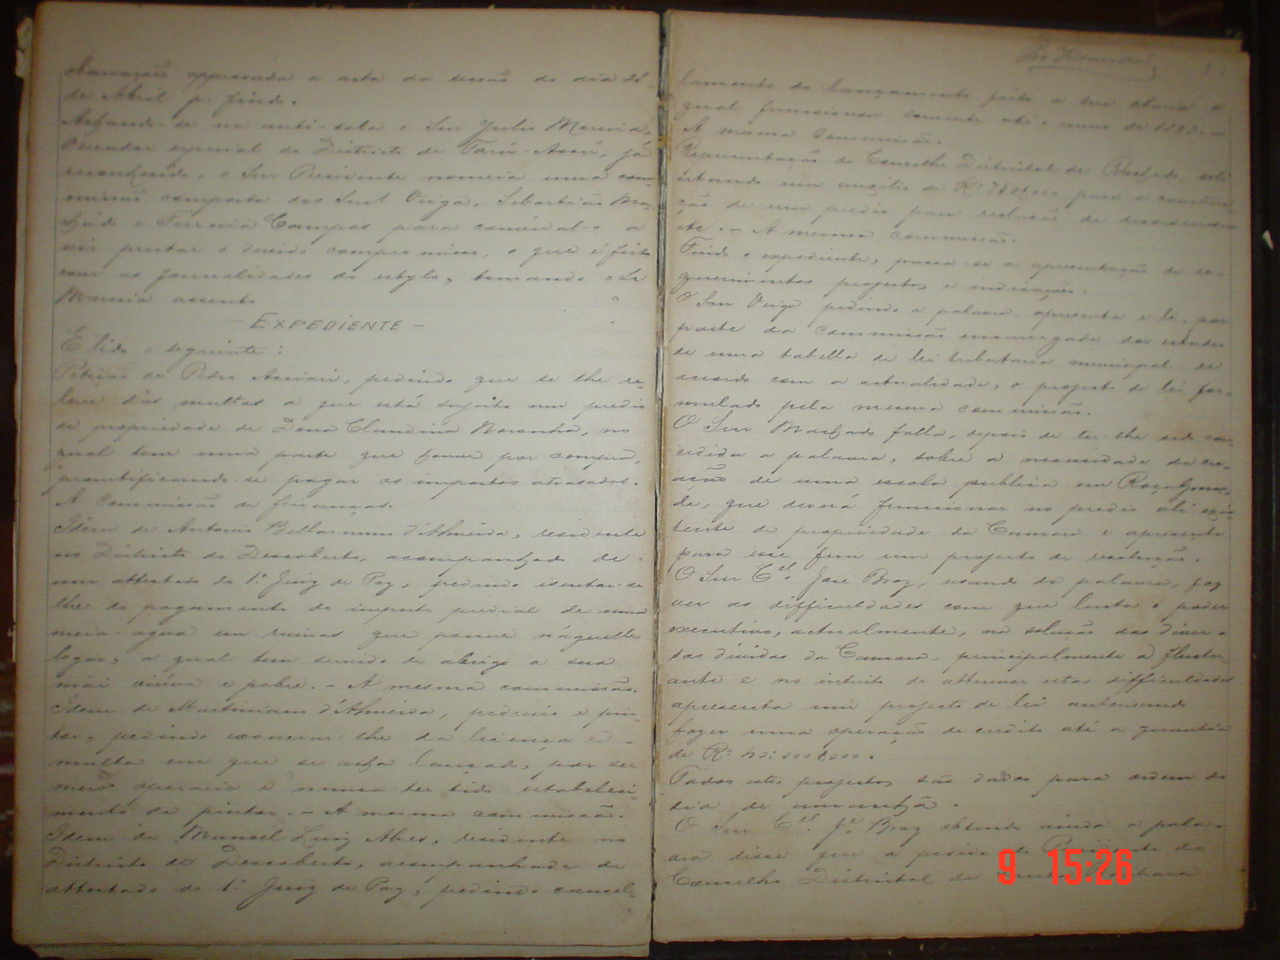 observações approvada a acta da sessão do dia 28
de Abril p. findo.
Achando-se na anti-sala o Snr Julio Moreira,
Vereador especial do Districto de Tarú-Assú, já
reconhecido, o Snr Presidente nomeia uma com-
missão composta dos Snrs Veiga, Sebastião Ma-
chado e Ferreira Campos para convidal-o a
vir prestar o devido compromisso, o que é feito
com as formalidades do estylo, tomando o Sr
Moreira assento
- EXPEDIENTE -
É lido o seguinte:
Petição de Pedro, pedindo que se lhe re-
leve das multas a que está sujeito um predio
de propriedade de Dona Claudina Noronha, no
qual tem uma parte que houve por compra,
promptificando-se pagar os impostos atrasados.
A commissão de finanças.
Idem de Antonio Bellarmino d'Almeida, residente
no Districto do Descoberto, acompanhado de
um attestado do 1º Juiz de Paz, pedindo isentar-se-
lhe do pagamento do imposto predial de uma
meia-agua em ruinas que possue n'aquelle
logar, a qual tem servido de abrigo a sua
mãi viúva e pobre. - A mesma commissão.
Idem de Martiniano d'Almeida, pedreiro e pin-
tor, pedindo exonerar-lhe da licença e -
multa em que se acha lançado, por ser
mero operario e nunca ter tido estabeleci-
mento de pintor. - A mesma commissão.
Idem de Manoel Luiz Alves, residente no
Districto do Descoberto, acompanhada de
attestado do 1º Juiz de Paz, pedindo cancel-
lamento do lançamento feito a sua o
qual funccionou somente até
A mesma Commissão.
Representação do Conselho Districtal de Rochedo, soli-
citando um auxilio de para a construc-
ção de um predio para reclusão de
etc. - A mesma commissão.
Findo o expediente, passa-se a apresentação de re-
querimentos projectos e indicações.
O Snr Veiga pedindo a palavra, apresenta e lê, por
parte da commissão encarregada dos estudos
de uma tabella de lei tributaria municipal de
accordo com a actualidade, o projecto de lei for-
mulado pela mesma commissão.
O Snr Machado falla, depois de ter-lhe sido con-
cedida a palavra, sobre a necessidade da cre-
ação de uma escola publica em Roça Gran-
de, que deverá funccionar no predio ali exis-
tente de propriedade da Camara e apresenta
para esse fim um projecto de resolução.
O Snr Cel. José Braz, usando da palavra, faz
ver as difficuldades com que lucta o poder
executivo, actualmente, na solução das diver-
sas dividas da Camara, principalmente a fluctu-
ante e no intuito de attenuar estas difficuldades
apresenta um projecto de lei autorisando
fazer uma operação de credito até a quantia
de Rs 40:000$000.
Todos estes projectos são dados para ordem do
dia de amanhã.
O Snr Cel. Jé Braz obtendo ainda a pala-
vra disse que a pedido do Presidente do
Conselho Districtal de Santa Barbara
9 15:26